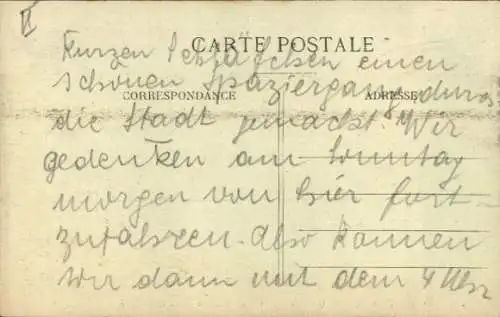 II
CARTE POSTALE
Kurzen Schläfchen einen
schönen Spaziergang durch
CORRESPONDANCE
ADRESSE
die Stadt gemacht. Wir
gedenken am Sonntag
morgen von hier fort-
zufahren. Also kommen
wir dann mit dem 4 Uhr